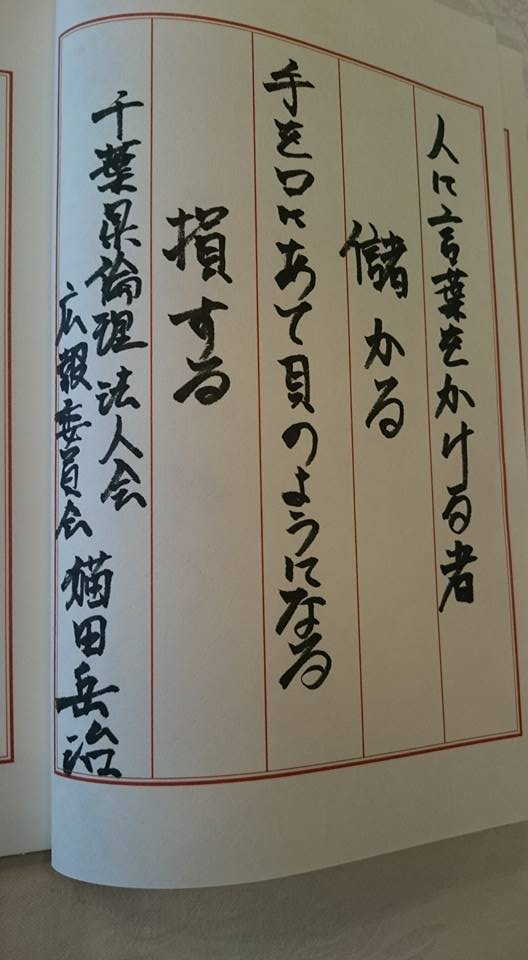 人に言葉をかける者
儲かる
手を口にあて貝のようになる
損する
千葉県倫理法人会
広報委員会 猫田岳治